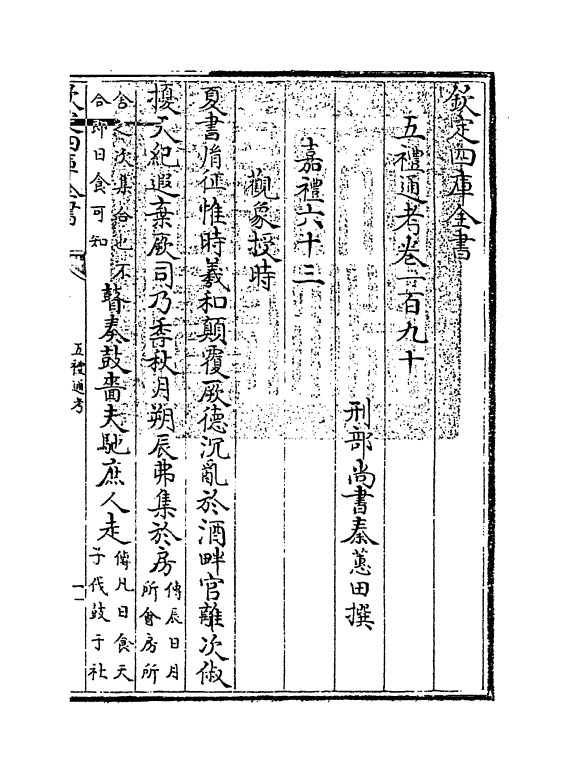 欽定四庫全書
五禮通考卷一百九十
刑部尚書秦蕙田撰
嘉禮六十三
觀象授時
夏書胤征惟時羲和顛覆厥德沉亂於酒畔官離次俶
擾天紀遐棄厥司乃季秋月朔辰弗集於房
傳辰日月
所會房所
舍之次集合也不
合即日食可知
瞽奏鼓嗇夫馳庶人走
傳凡日食天
子伐鼓于社
五禮通考
一